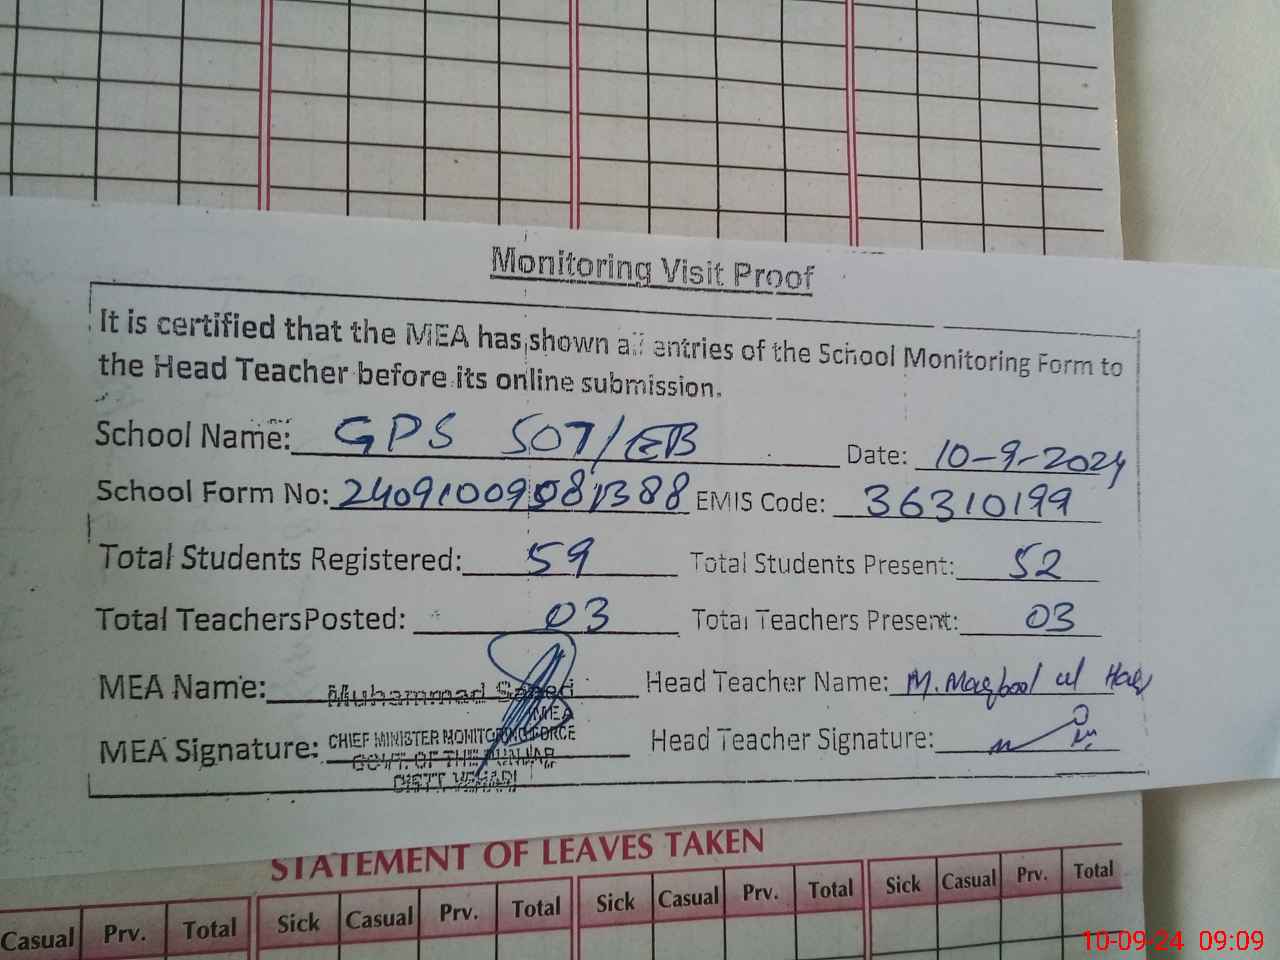 Monitoring Visit Proof
It is certified that the MEA has shown all entries of the School Monitoring Form to
the Head Teacher before its online submission.
School Name: GPS 507/EB Date: 10-9-2024
School Form No: EMIS Code: 36310199
Total Students Registered: 59 Total Students Present: 52
Total TeachersPosted: 03 Total Teachers Present: 03
MEA Name: Muhammad Saeed Head Teacher Name: M. Maqbool ul Haq
MEA
MEA Signature: CHIEF MINISTER MONITORING FORCE Head Teacher Signature:
GOVT. OF THE PUNJAB
DISTT. VEHARI
STATEMENT OF LEAVES TAKEN
Casual Prv. Total Sick Casual Prv. Total Sick Casual Prv. Total Sick Casual Prv. Total
10-09-24 09:09